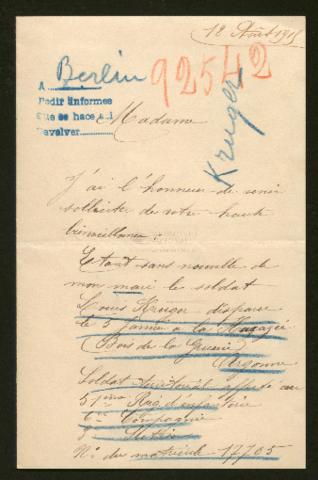 12 Août 1915
A Berlin
92542
Pedir informes
Que se hace
Devolver
Kruger
Madame
J'ai l'honneur de venir
solliciter de votre haute
bienveillance
Etant sans nouvelle de
mon mari le soldat
Louis Krüger disparu
le 5 Janvier à la Harazée
(Bois de la Gruerie)
Argonne
Soldat territorial affecté au
51ème Rég d'infanterie
6me Compagnie
8 Section
N° du matricule 17705